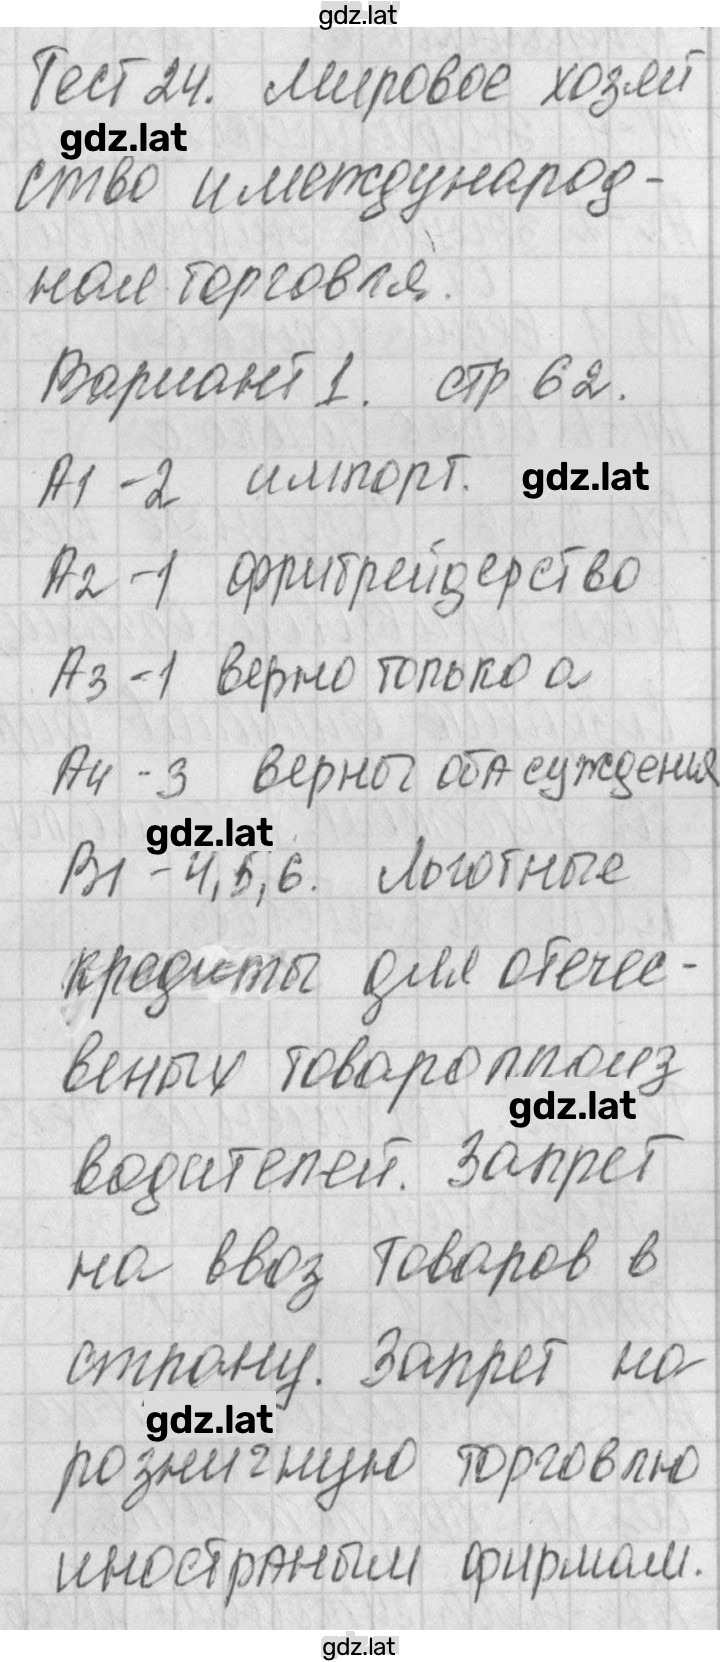 gdz.lat
Тест 24. Мировое хозяй
gdz.lat
ство и международ-
ная торговля.
Вариант 1. стр 62.
А1 - 2 импорт. gdz.lat
А2 - 1 фритрейдерство
А3 - 1 верно только а
А4 - 3 верны оба суждения
gdz.lat
В1 - 4, 5, 6. Льготные
кредиты для отечес-
веных товаропроиз
gdz.lat
водителей. Запрет
на ввоз товаров в
страну. Запрет на
gdz.lat
розничную торговлю
иностраным фирмам.
gdz.lat